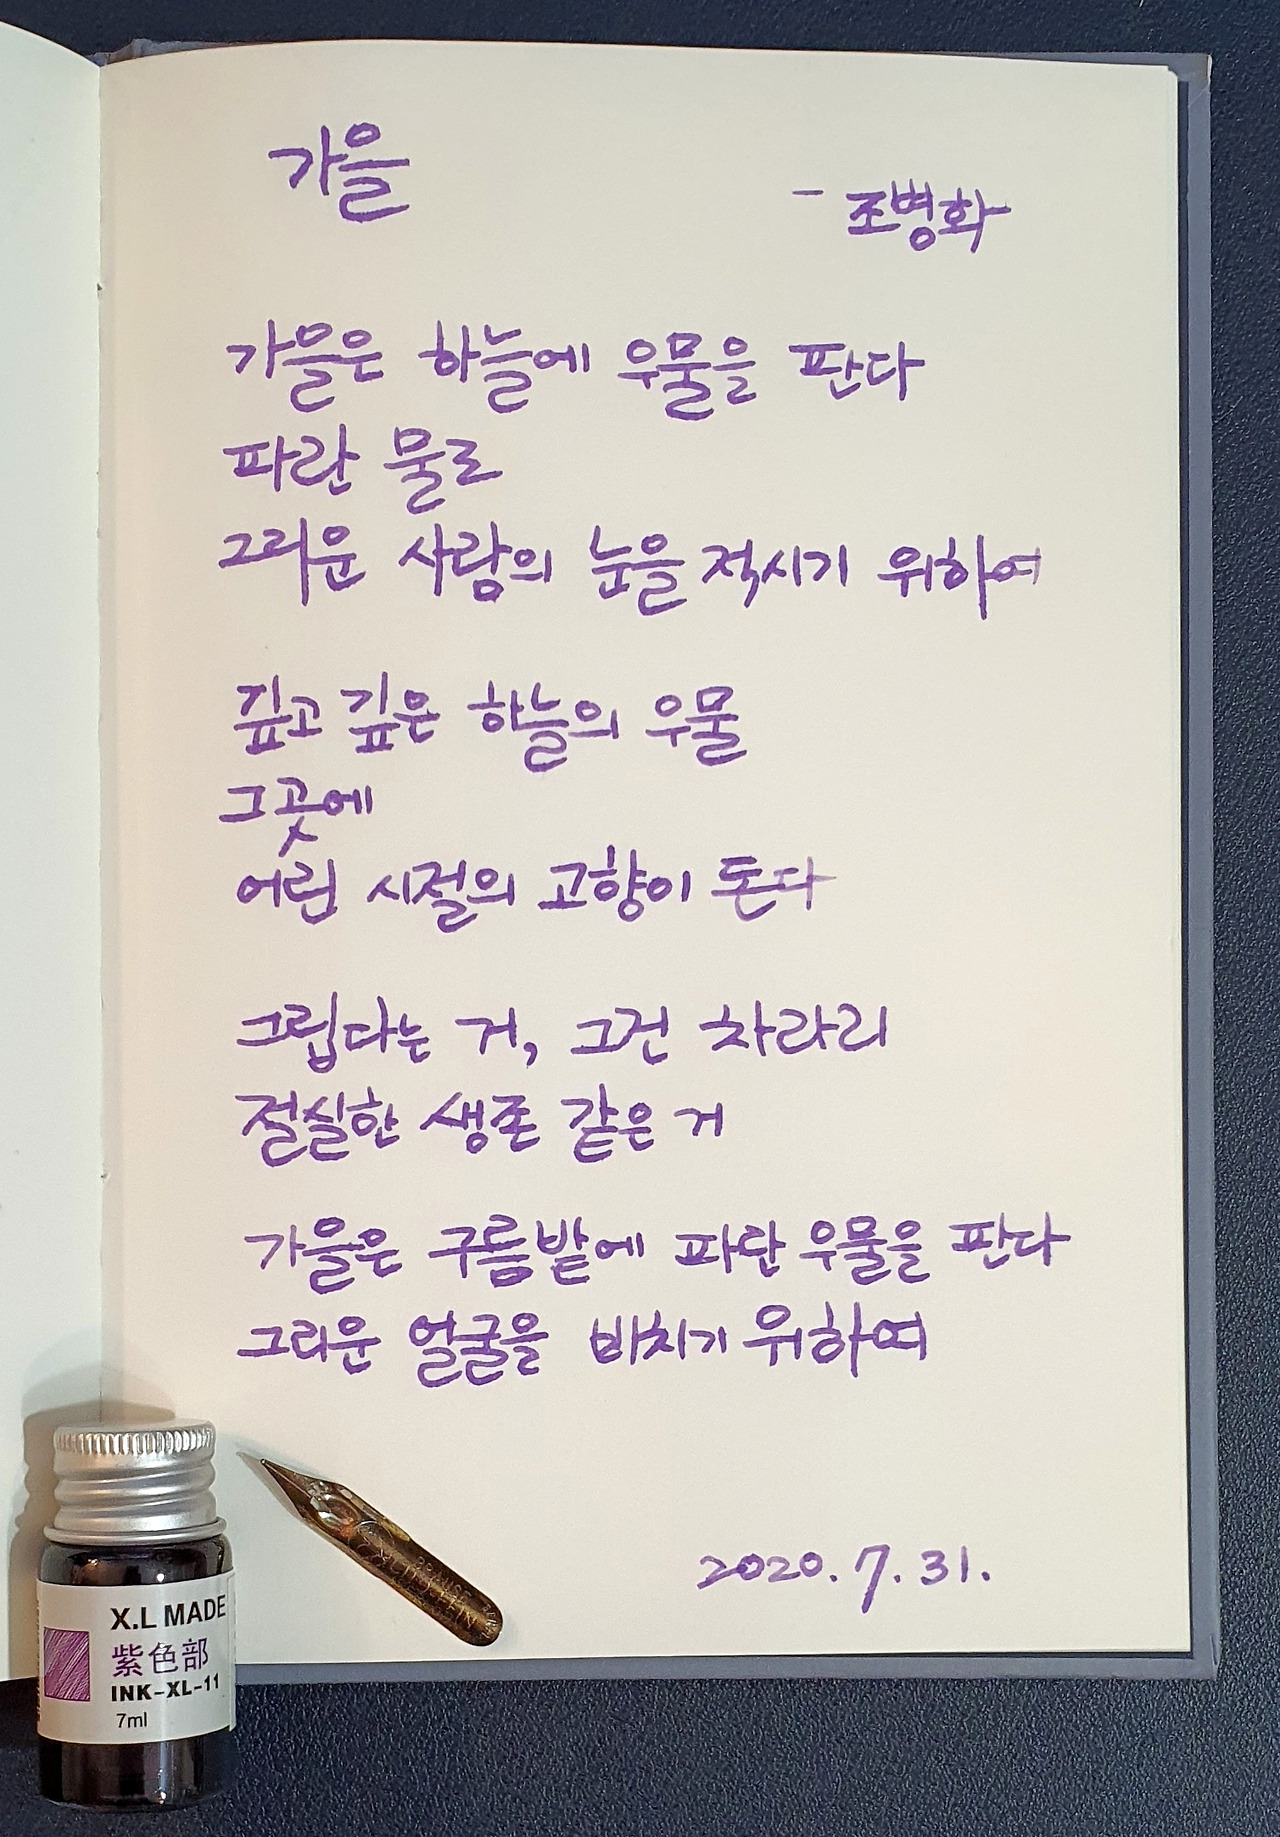 가을
- 조병화
가을은 하늘에 우물을 판다
파란 물로
그리운 사람의 눈을 적시기 위하여
깊고 깊은 하늘의 우물
그곳에
어린 시절의 고향이 돈다
그립다는 거, 그건 차라리
절실한 생존 같은 거
가을은 구름밭에 파란 우물을 판다
그리운 얼굴을 비치기 위하여
2020. 7. 31.
X.L MADE
紫色部
INK-XL-11
7ml